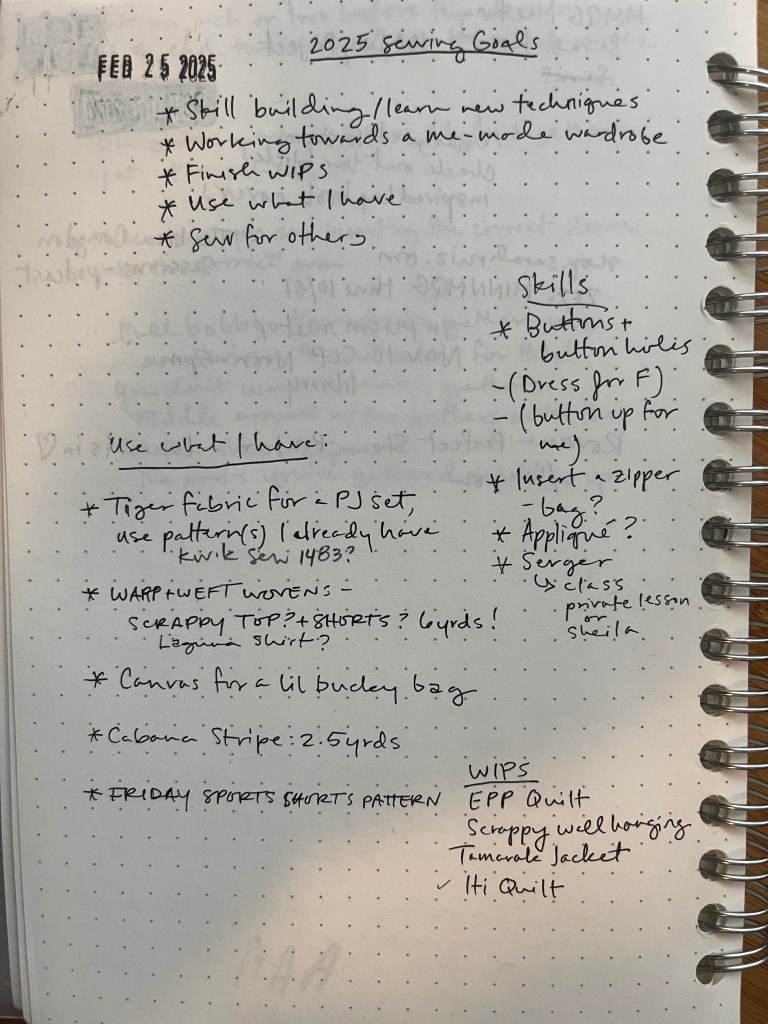 2025 Sewing Goals
FEB 25 2025
* Skill building/learn new techniques
* Working towards a me-made wardrobe
* Finish WIPS
* Use what I have
* Sew for others
Skills
* Buttons +
button holes
- (Dress for F)
- (button up for
me)
* Insert a zipper
- bag?
* Appliqué?
* Serger
↳ class
private lesson
or
Sheila
Use what I have:
* Tiger fabric for a PJ set,
use pattern(s) I already have
Kwik Sew 1483?
* WARP + WEFT WOVENS -
SCRAPPY TOP? + SHORTS? 6yrds!
Laguna Shirt?
* Canvas for a lil buckey bag
* Cabana Stripe: 2.5yrds
* FRIDAY SPORTS SHORTS PATTERN
WIPS
EPP Quilt
Scrappy wall hanging
Tamarak Jacket
✓ Hi Quilt